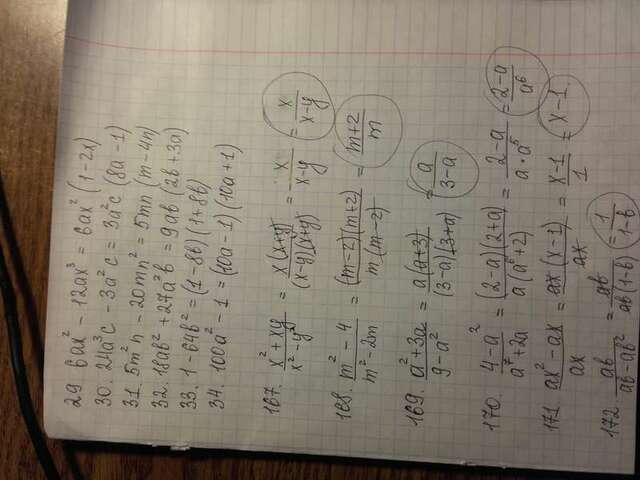 29 6ax² - 12ax³ = 6ax² (1-2x)
30. 24a³c - 3a²c = 3a²c (8a-1)
31. 5m²n - 20mn² = 5mn (m-4n)
32. 18ab² + 27a²b = 9ab (2b+3a)
33. 1-64b² = (1-8b)(1+8b)
34. 100a² - 1 = (10a-1)(10a+1)
167. (x²+xy)/(x²-y²) = x(x+y)/(x-y)(x+y) = x/(x-y) = x/(x-y)
168. (m²-4)/(m²-2m) = (m-2)(m+2)/m(m-2) = (m+2)/m
169. (a²+3a)/(9-a²) = a(a+3)/(3-a)(3+a) = a/(3-a)
170. (4-a²)/(a⁷+2a) = (2-a)(2+a)/a(a⁶+2) = (2-a)/(a·a⁵) = (2-a)/a⁶
171 (ax²-ax)/ax = ax(x-1)/ax = (x-1)/1 = x-1
172. ab/(ab-ab²) = ab/ab(1-b) = 1/(1-b)